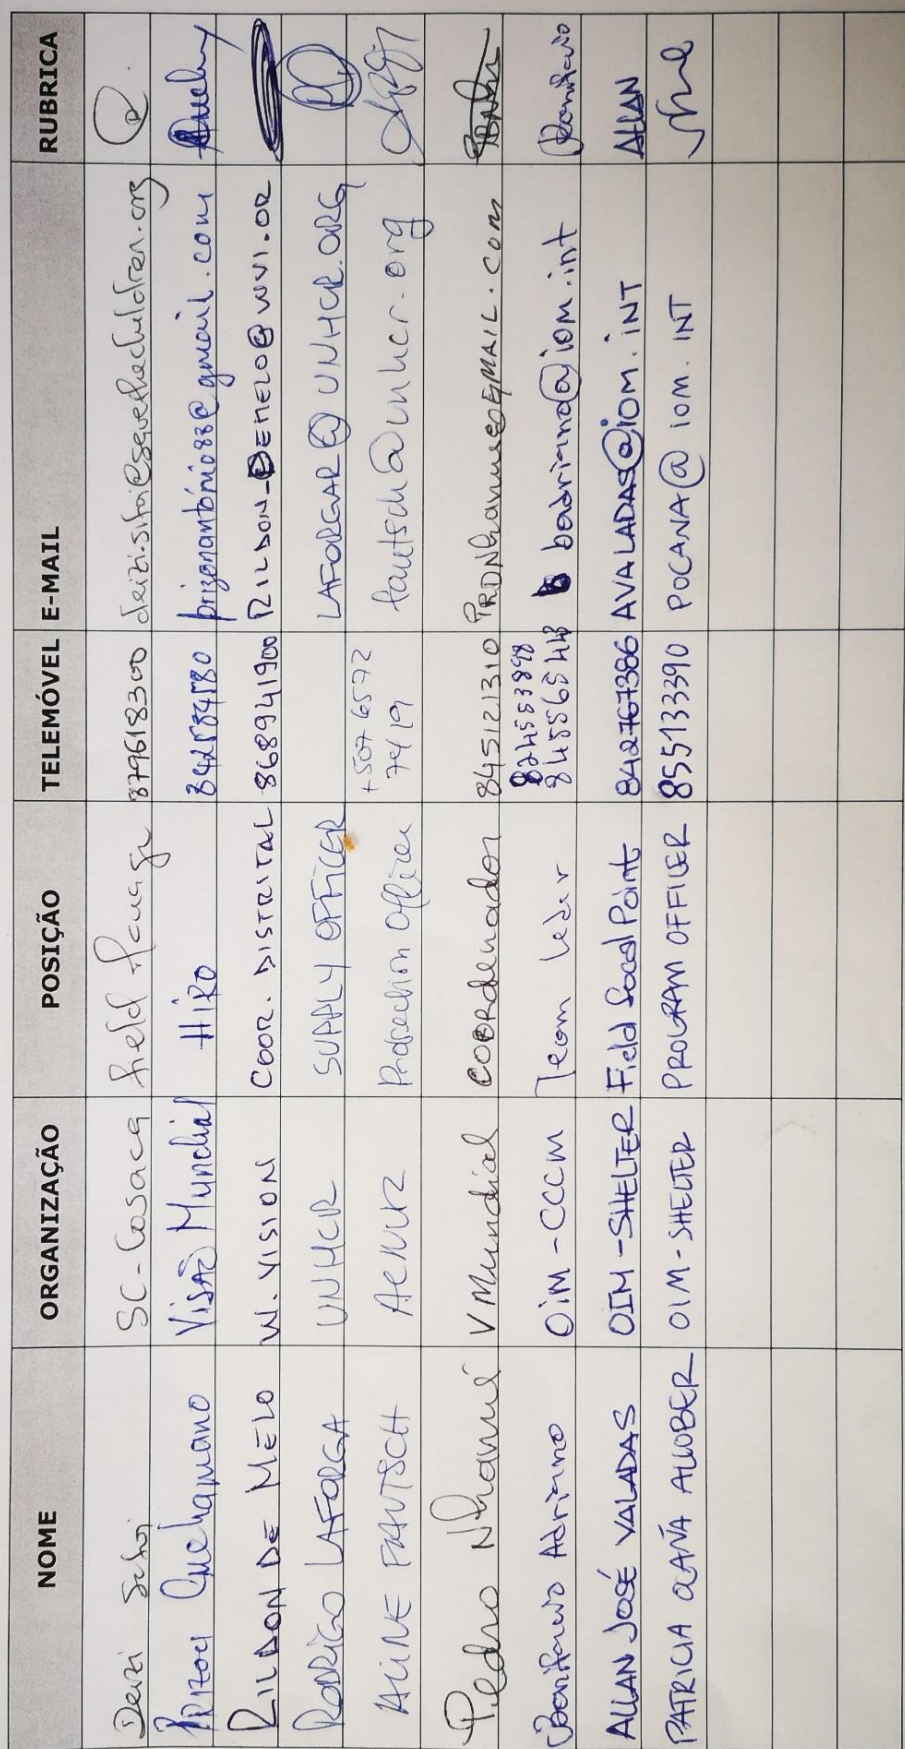 NOME ORGANIZAÇÃO POSIÇÃO TELEMÓVEL E-MAIL RUBRICA
Deizi Sitoi SC-Cosaca 879618300
Quehamano Visão Mundial HIRO 842584580 prizonantónio88@gmail.com
RILDON DE MELO W. VISION COOR. DISTRITAL 868941900 RILDON_DEMELO@WVI.OR
RODRIGO LAFORGA UNHCR SUPPLY OFFICER LAFORGAR@UNHCR.ORG
ALINE FAUTSCH ACNUR Protection Officer +507 6572 fautsch@unhcr.org
7419
Pedro Nhamué V Mundial COORdenador 845121310 PRDNhamue@GMAIL.COM
Bonifacio Adriano OiM-CCCM Team leder badriano@iom.int Bonifacio
ALLAN JOSÉ VALADAS OIM-SHELTER Field Focal Point 842767386 AVALADAS@iOM.iNT ALLAN
PATRICIA OCAÑA ALLOBER OIM-SHELTER PROGRAM OFFICER 855133390 POCANA@iom.INT